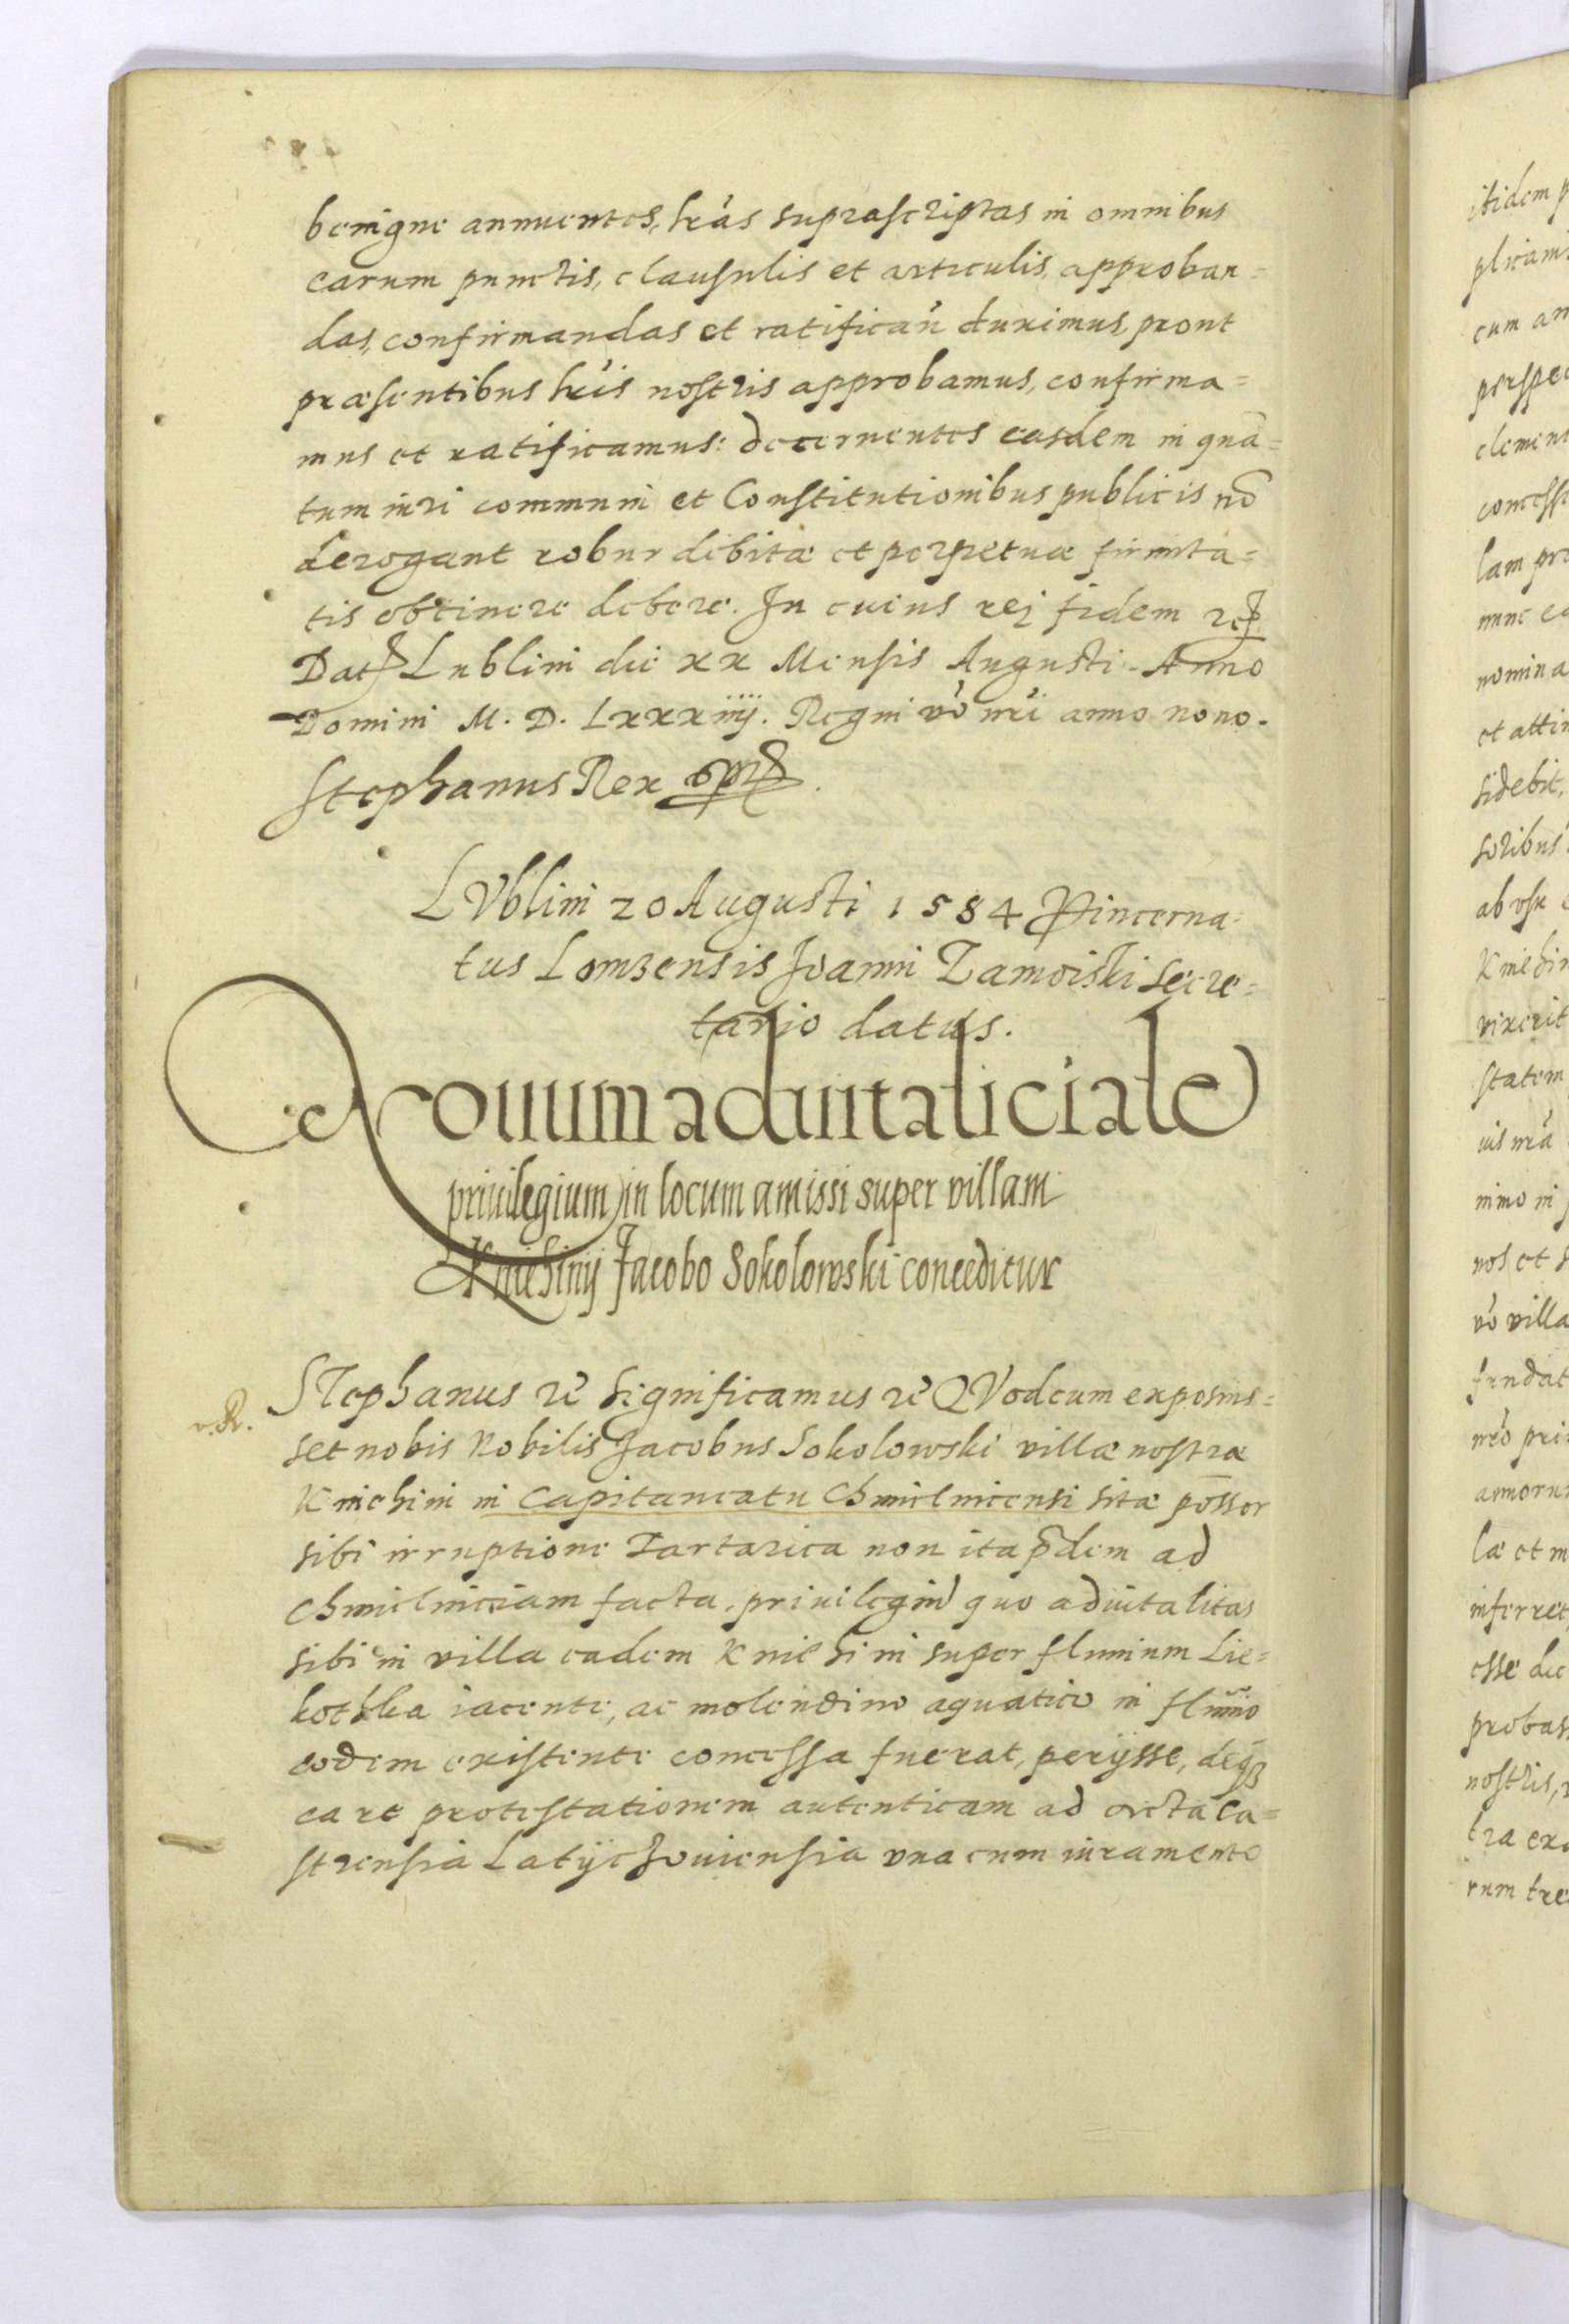 benigne annuentes, lr̃as suprascriptas in omnibus
earum punctis, clausulis et articulis, approban=
das, confirmandas et ratifican̄ duximus, prout
præsentibus lr̃is nostris approbamus, confirma=
mus et ratificamus: decernentes easdem in quā=
tum iuri communi et Constitutionibus publicis nō
derogant robur debitæ et perpetuæ firmita=
tis obtinere debere. In cuius rei fidem rc̃
Dat Lublini die xx Mensis Augusti Anno
Domini M. D. Lxxxiiij. Regni vo nr̃i anno nono.
Stephanus Rex
LVblini 20 Augusti 1584 Pincerna=
tus Lomzensis Joanni Zamoiski Secre=
tario datus.
Nouum aduitaliciale
priuilegium in locum amissi super villam
Kniehinij Jacobo Sokolowski conceditur
v. R.
STephanus rc̃ Significamus rc̃ QVod cum exposuis=
set nobis Nobilis Jacobus Sokolowski villæ nostræ
Kniehini in Capitaneatu Chmielnicensi sitæ pōssor
sibi irruptione Tartarica non ita p̃dem ad
Chmielniciam facta, priuilegiū quo aduitalitas
sibi in villa eadem Kniehini super fluuium Lie=
hothka iacente, ac molendino aquatico in fluuio
eodem existente concessa fuerat, perijsse, deq̃
ea re protestationem autenticam ad acta Ca=
strensia Latijchouiensia vna cum iuramento
itidem p
plicam
cum an
perspec
clement
concess
lam pro
nunc ea
nomina
et attin
sidebit,
soribus
ab vsu
Kniehin
vixerit
statem
uis nr̃a
nimo in
nos et S
vo villa
fundat
nr̃o pri
annorum
læ et m
inferret
esse dic
probas
nostris,
tra exa
rum tre